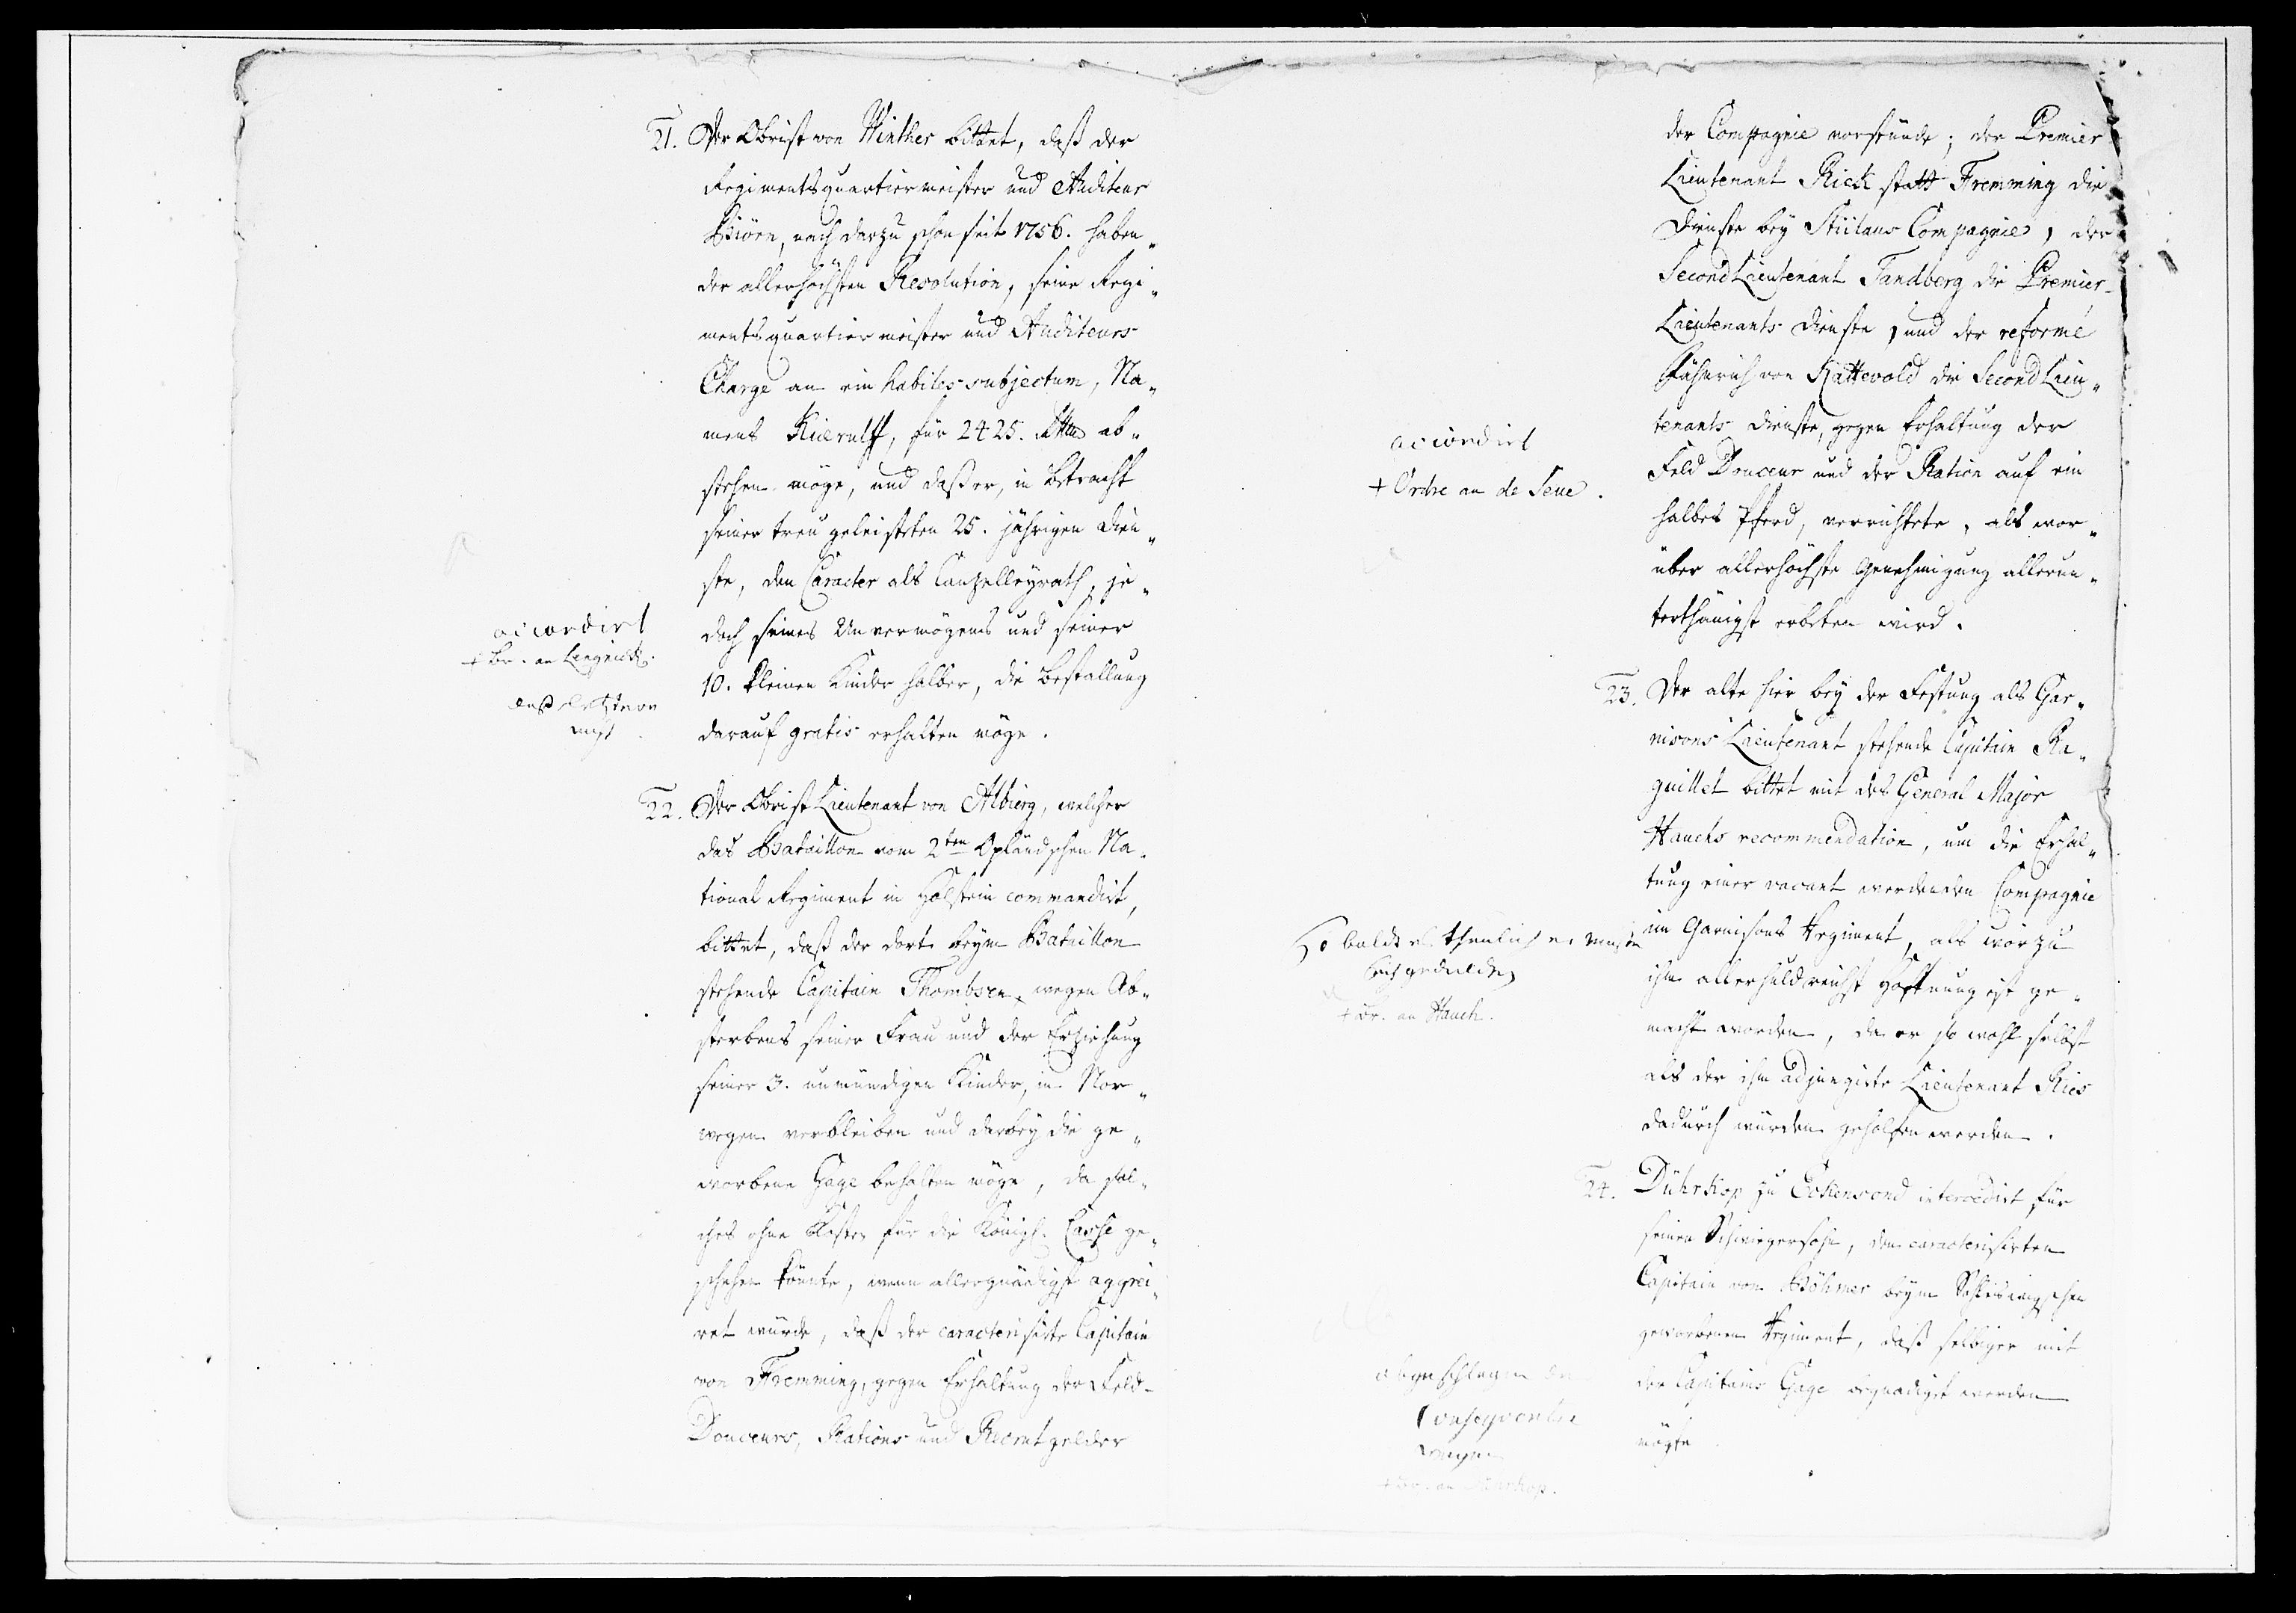 21. Der Obrist von Winther bittet, daß der
Regimentsquartiermeister und Auditeur
Biörn, nach darzu schon seit 1756. haben„
der allerhöchsten Resolution, seine Regi„
mentsquartiermeister und Auditeurs
Charge an ein habiles subjectum, Na„
mens Kierulff, für 2425. Rthlr ab„
stehen möge, und daß er, in Betracht
seiner treu geleisteten 25. jährigen Dien„
ste, den Caracter als Canzelleyrath, je„
doch seines Unvermögens und seiner
10. kleinen Kinder halber, die Bestallung
darauf gratis erhalten möge.
accordirt
+ Br. an
das letztere
nicht
22. Der Obrist Lieutenant von Albierg, welcher
das Bataillon vom 2ten Opländschen Na„
tional Regiment in Holstein commandirt,
bittet, daß der dort beym Bataillon
stehende Capitain Thombsen, wegen Ab„
sterbens seiner Frau und der Erziehung
seiner 3. unmündigen Kinder, in Nor„
wegen verbleiben und dabey die ge„
worbene Gage behalten möge, da sol„
ches ohne Kosten für die Königl. Casse ge„
schehen könnte, wenn allergnädigst aggrei„
ret würde, daß der caracterisirte Capitain
von Fremming, gegen Erhaltung der Feld-
Douceurs, Rations und Recrutgelder
der Compagnie vorstünde; der Premier
Lieutenant Rick statt Fremming die
Dienste bey Stiilaus Compagnie, der
Second Lieutenant Tandberg die Premier-
Lieutenants Dienste, und der reformé
Fähnrich von Kattevold die Second Lieu„
tenants Dienste, gegen Erhaltung der
Feld Douceur und der Ration auf ein
halbes Pferd, verrichtete, als wor„
über allerhöchste Genehmigung allerun„
terthänigst erbeten wird.
accordirt
+ Ordre an de Seue.
23. Der alte hier bey der Festung als Gar„
nisons Lieutenant stehende Capitain Ra„
guillet bittet mit des General Major
Hauchs recommendation, um die Erhal„
tung einer vacant werdenden Compagnie
im Garnisons Regiment, als worzu
ihm allerhuldreichst Hoffnung ist ge„
macht worden, da er so wohl selbst
als der ihm adjungirte Lieutenant Ries
dadurch würden geholfen werden.
So baldt als thunlich er muste
sich gedulden
+ Br. an Hauch.
24. Dührkop zu Eckensond intercedirt für
seinen Schwiegersohn, den caracterisirten
Capitain von Böhmer beym Schleswigschen
geworbenen Regiment, daß selbiger mit
der Capitains Gage begnadigt werden
mögte
abgeschlagen der
Conseqventze
wegen
+ Br. an Dührkop.